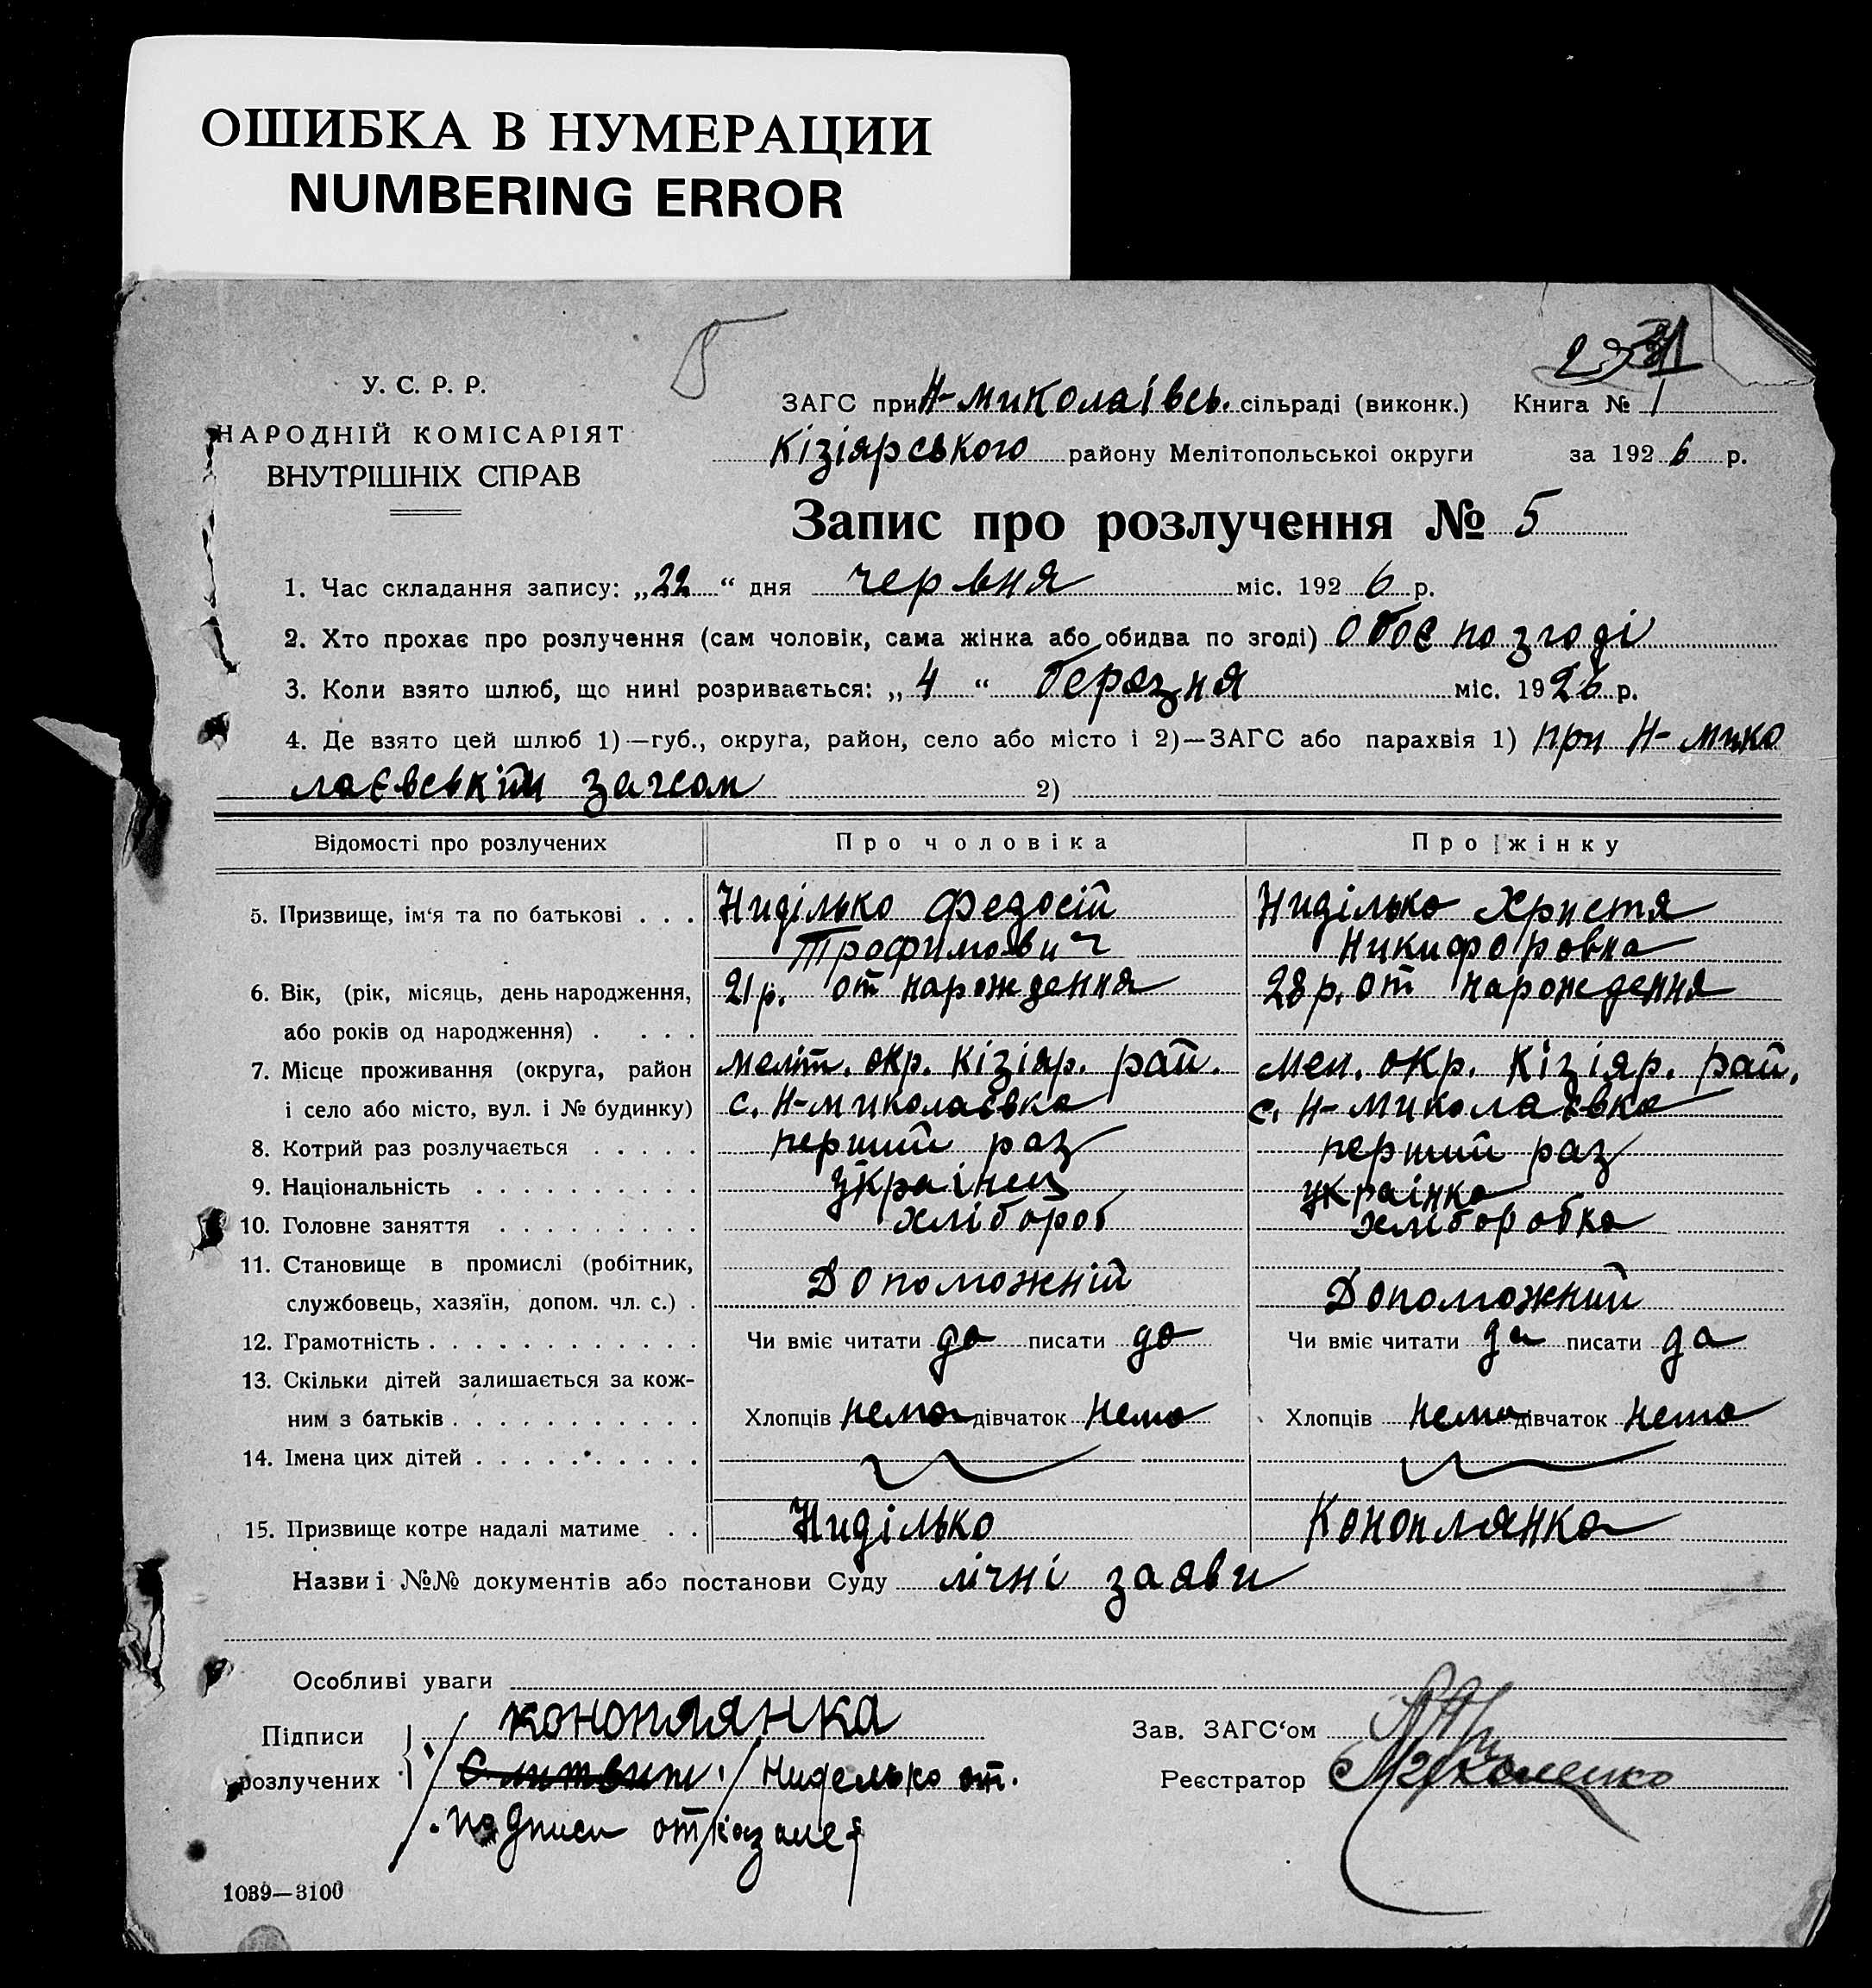 ОШИБКА В НУМЕРАЦИИ
NUMBERING ERROR
5
У. С. Р. Р.
НАРОДНІЙ КОМІСАРІЯТ
ВНУТРІШНІХ СПРАВ
ЗАГС при Н-миколаївсь. сільраді (виконк.) Книга № 1
Кізіярського району Мелітопольської округи за 1926 р.
Запис про розлучення № 5
1. Час складання запису: „22“ дня червня міс. 1926 р.
2. Хто прохає про розлучення (сам чоловік, сама жінка або обидва по згоді) Обоє по згоді
3. Коли взято шлюб, що нині розривається: „4“ березня міс. 1926 р.
4. Де взято цей шлюб 1)—губ., округа, район, село або місто і 2)—ЗАГС або парахвія 1) при Н-мико
лаєвським загсом 2)
Відомості про розлучених Про чоловіка Про жінку
5. Призвище, ім'я та по батькові . . . Ниділько Федосій Ниділько Христя
Трофимович Никифоровна
6. Вік, (рік, місяць, день народження, 21 р. от нарождення 28 р. от нарождення
або років од народження) . . . .
7. Місце проживання (округа, район меліт. окр. Кізіяр. рай. мел. окр. Кізіяр. рай.
і село або місто, вул. і № будинку) с. Н-миколаєвка с. Н-миколаєвка
8. Котрий раз розлучається . . . . . перший раз перший раз
9. Національність . . . . . . . . . . українец українка
10. Головне заняття . . . . . . . . . хлібороб хліборобка
11. Становище в промислі (робітник,
службовець, хазяїн, допом. чл. с.) . Допоможній Допоможний
12. Грамотність . . . . . . . . . . . . Чи вміє читати да писати да Чи вміє читати да писати да
13. Скільки дітей залишається за кож-
ним з батьків . . . . . . . . . . . Хлопців нема дівчаток нема Хлопців нема дівчаток нема
14. Імена цих дітей . . . . . . . . . .
15. Призвище котре надалі матиме . . Ниділько Коноплянка
Назви і №№ документів або постанови Суду лічні заяви
Особливі уваги
Підписи коноплянка Зав. ЗАГС'ом
розлучених Ниделько от. Реєстратор
подписи отказалс
1039—3100